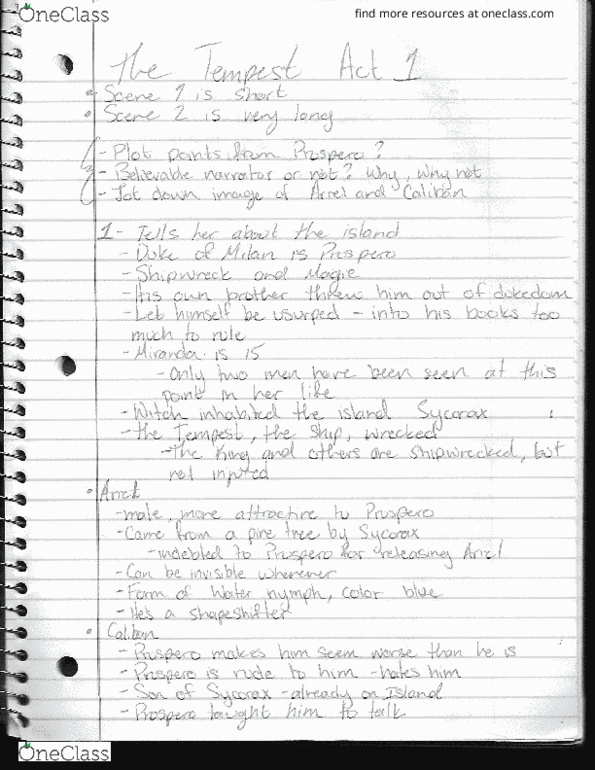 OneClass
find more resources at oneclass.com
The Tempest Act 1
• Scene 1 is short
• Scene 2 is very long
- Plot points from Prospero?
- Believable narrator or not? Why, Why not
- Jot down image of Ariel and Caliban
1 - Tells her about the island
- Duke of Milan is Prospero
- Shipwreck and Magic
- His own brother threw him out of dukedom
- Let himself be usurped - into his books too
much to rule
- Miranda is 15
- Only two men have been seen at this
point in her life
- Witch inhabited the island Sycorax
- the Tempest, the ship, wrecked
- The King and others are shipwrecked, but
not injured
• Ariel
- male, more attractive to Prospero
- Came from a pine tree by Sycorax
- indebted to Prospero for releasing Ariel
- Can be invisible whenever
- Form of Water nymph, color blue
- He's a shapeshifter
• Caliban
- Prospero makes him seem worse than he is
- Prospero is rude to him - hates him
- Son of Sycorax - already on Island
- Prospero taught him to talk
OneClass